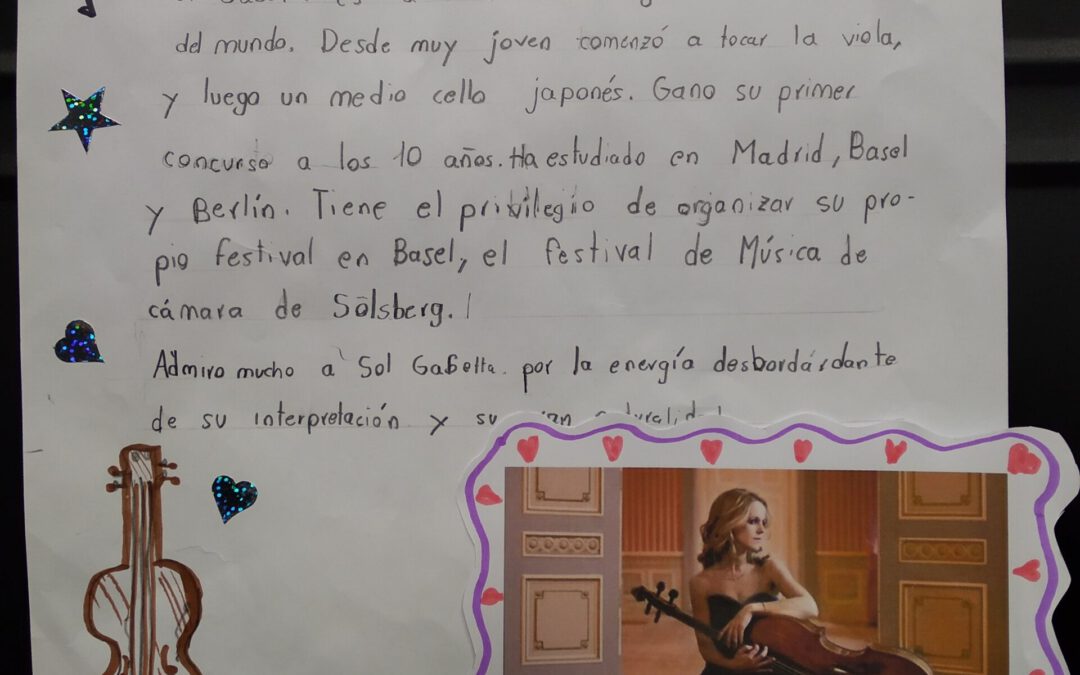 del mundo. Desde muy joven comenzó a tocar la viola,
y luego un medio cello japonés. Gano su primer
concurso a los 10 años. Ha estudiado en Madrid, Basel
y Berlín. Tiene el privilegio de organizar su pro-
pio festival en Basel, el festival de Música de
cámara de Sölsberg.
Admiro mucho a Sol Gabetta. por la energía desbordárdante
de su interpretación y su